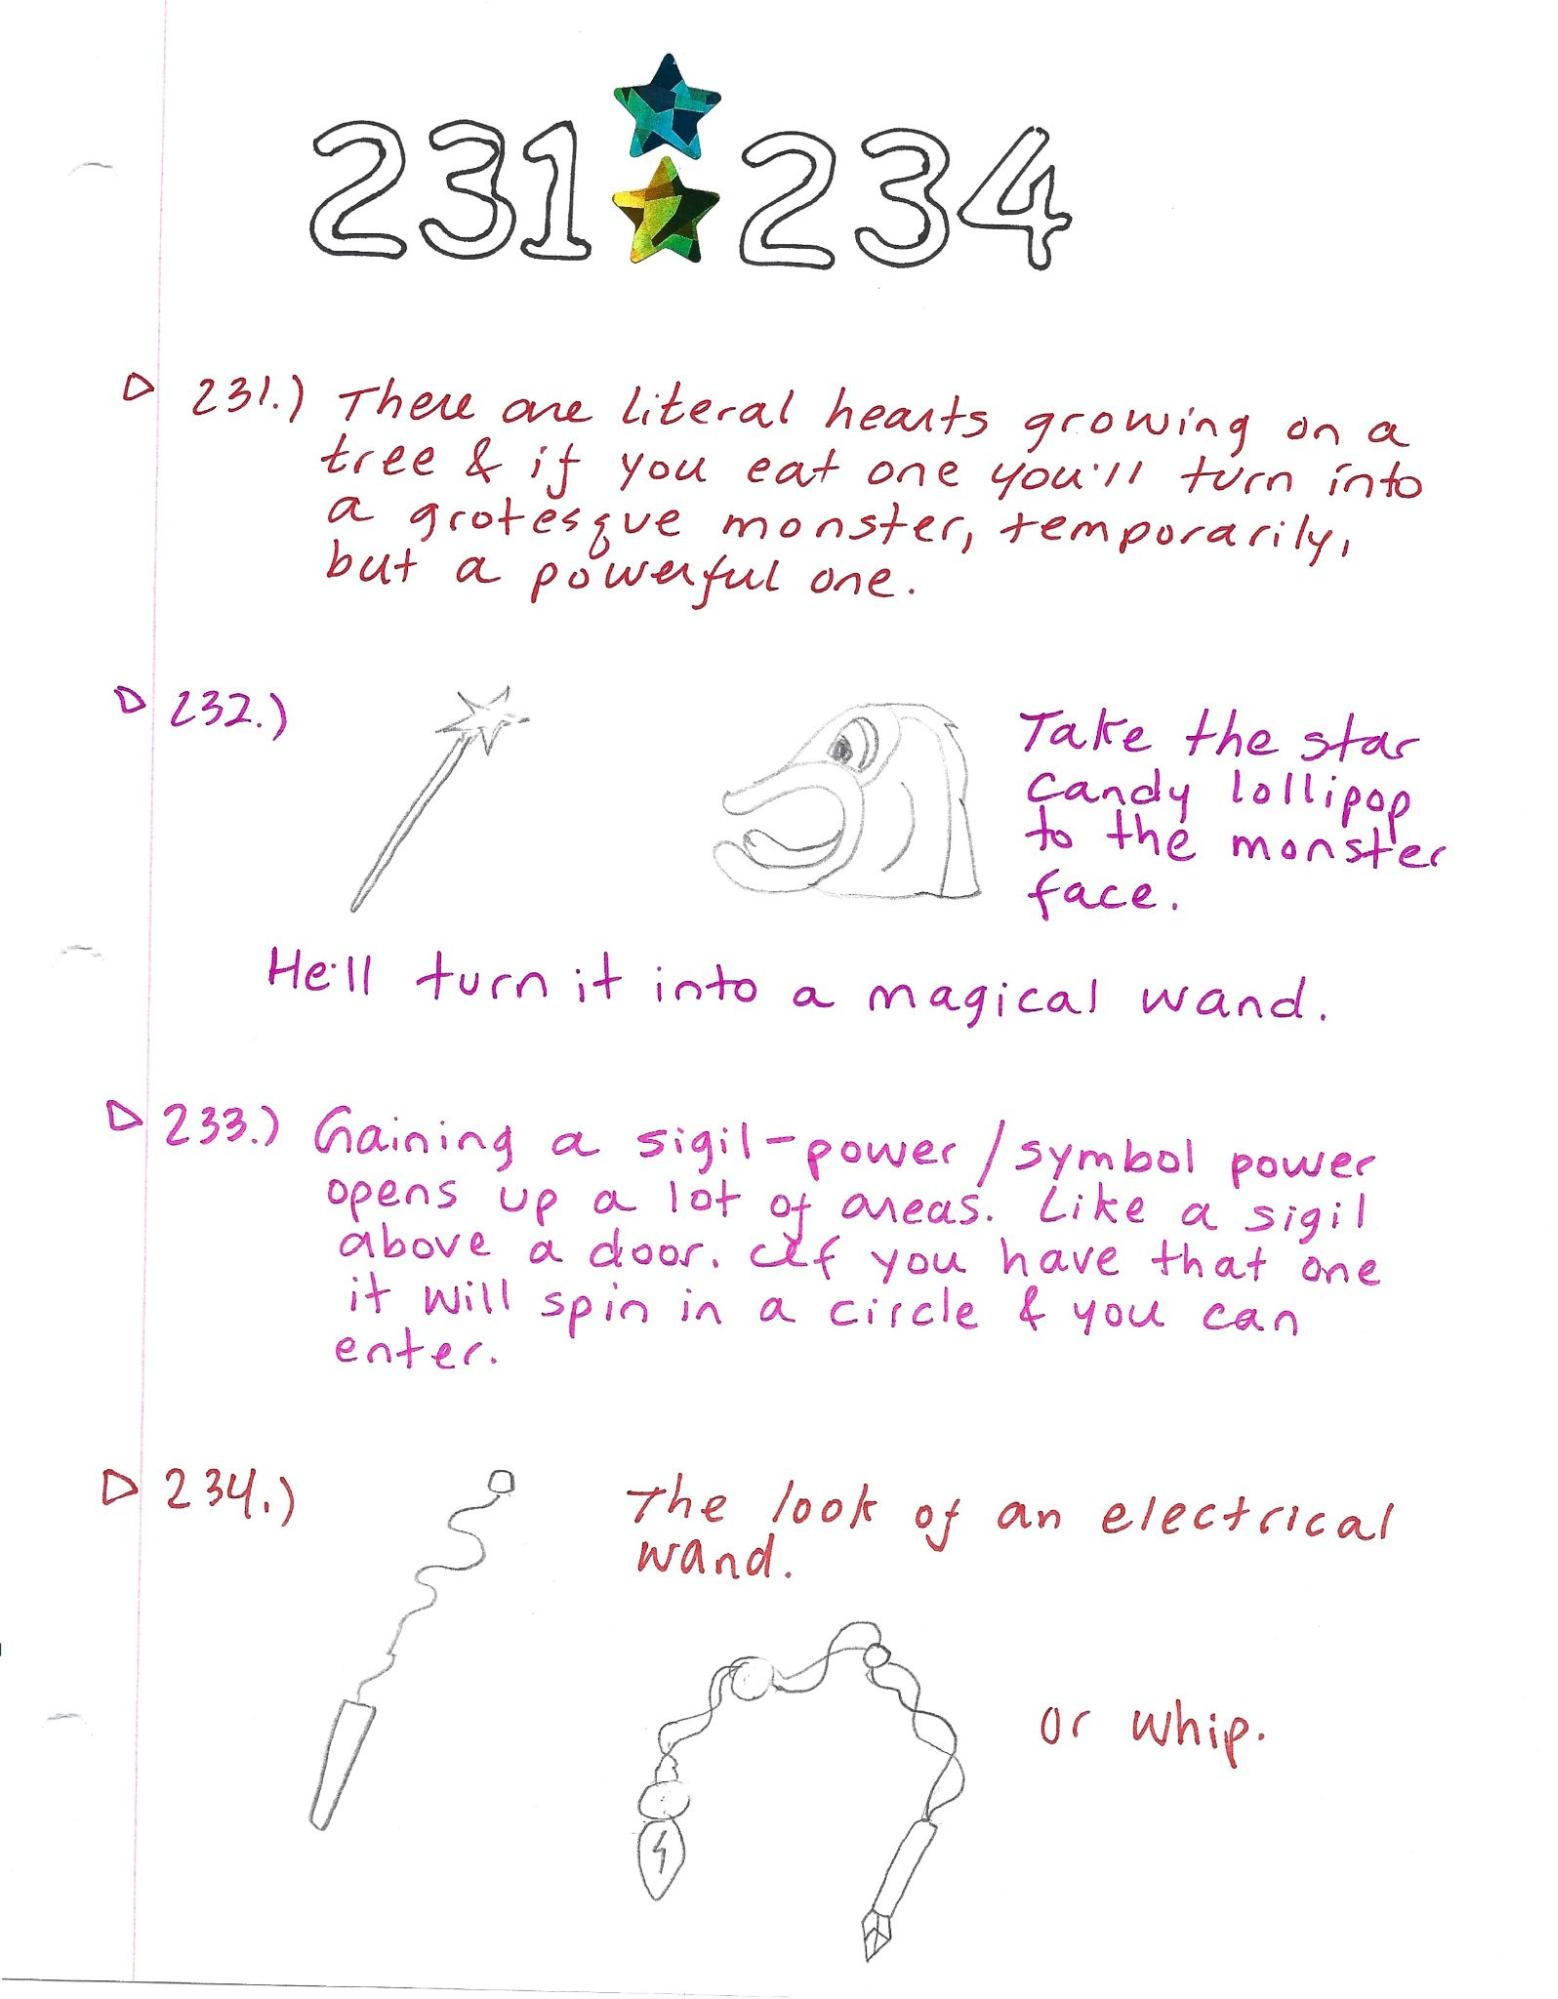 231 234
231.) There are literal hearts growing on a
tree & if you eat one you'll turn into
a grotesque monster, temporarily,
but a powerful one.
232.)
Take the star
candy lollipop
to the monster
face.
He'll turn it into a magical wand.
233.) Gaining a sigil-power/symbol power
opens up a lot of areas. Like a sigil
above a door. If you have that one
it will spin in a circle & you can
enter.
234.)
The look of an electrical
wand.
or whip.